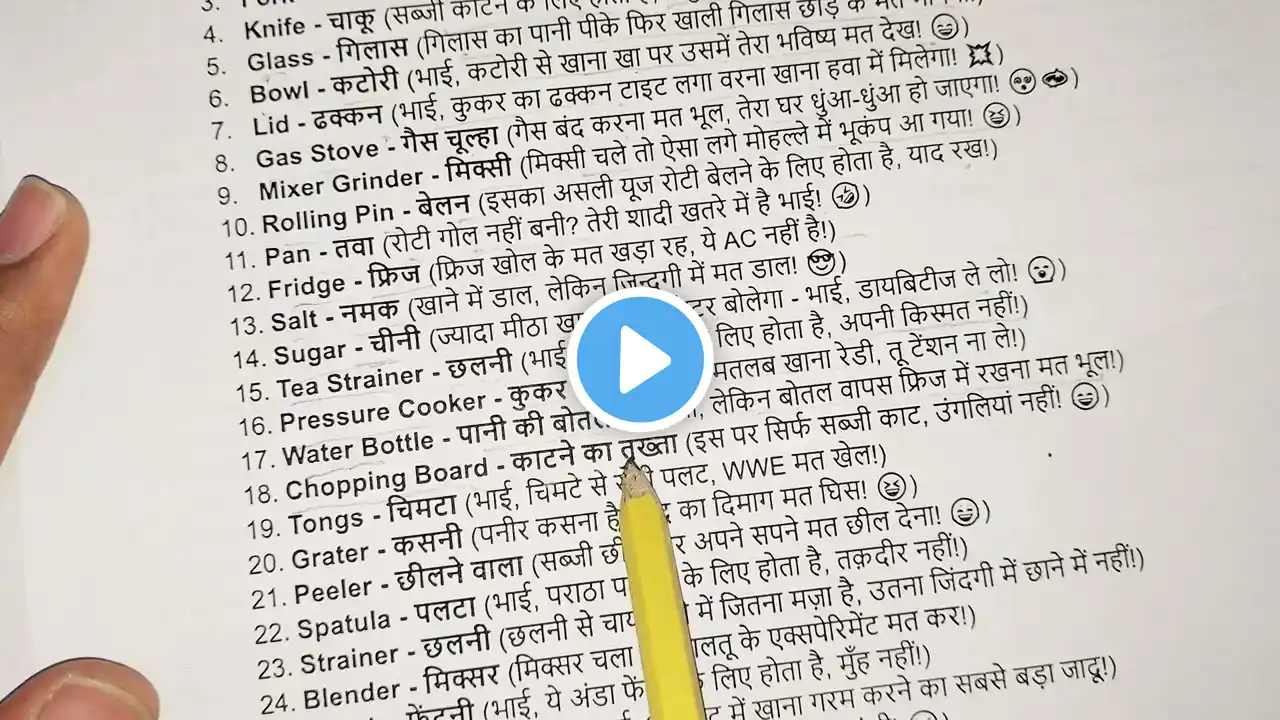 4. Knife - चाकू (सब्जी काटने के लिए होता
5. Glass - गिलास (गिलास का पानी पीके फिर खाली गिलास छोड़ के मत
6. Bowl - कटोरी (भाई, कटोरी से खाना खा पर उसमें तेरा भविष्य मत देख! 😄)
7. Lid - ढक्कन (भाई, कुकर का ढक्कन टाइट लगा वरना खाना हवा में मिलेगा! 💥)
8. Gas Stove - गैस चूल्हा (गैस बंद करना मत भूल, तेरा घर धुंआ-धुंआ हो जाएगा!
9. Mixer Grinder - मिक्सी (मिक्सी चले तो ऐसा लगे मोहल्ले में भूकंप आ गया! 😆)
10. Rolling Pin - बेलन (इसका असली यूज रोटी बेलने के लिए होता है, याद रख!)
11. Pan - तवा (रोटी गोल नहीं बनी? तेरी शादी खतरे में है भाई! 🤣)
12. Fridge - फ्रिज (फ्रिज खोल के मत खड़ा रह, ये AC नहीं है!)
13. Salt - नमक (खाने में डाल, लेकिन जिन्दगी में मत डाल! 😎)
14. Sugar - चीनी (ज्यादा मीठा बोलेगा - भाई, डायबिटीज ले लो! 😮)
15. Tea Strainer - छलनी (भाई लिए होता है, अपनी किस्मत नहीं!)
16. Pressure Cooker - कुकर मतलब खाना रेडी, तू टेंशन ना ले!)
17. Water Bottle - पानी की लेकिन बोतल वापस फ्रिज में रखना मत भूल!)
18. Chopping Board - काटने का तख्ता (इस पर सिर्फ सब्जी काट, उंगलियां नहीं! 😄)
19. Tongs - चिमटा (भाई, चिमटे से पलट, WWE मत खेल!)
20. Grater - कसनी (पनीर कसना का दिमाग मत घिस! 😆)
21. Peeler - छीलने वाला (सब्जी अपने सपने मत छील देना! 😄)
22. Spatula - पलटा (भाई, पराठा के लिए होता है, तक़दीर नहीं!)
23. Strainer - छलनी (छलनी से में जितना मज़ा है, उतना जिंदगी में छाने में नहीं!)
24. Blender - मिक्सर (मिक्सर चला के एक्सपेरिमेंट मत कर!)
फेंटनी (भाई, ये अंडा लिए होता है, मुँह नहीं!)
में खाना गरम करने का सबसे बड़ा जादू!)